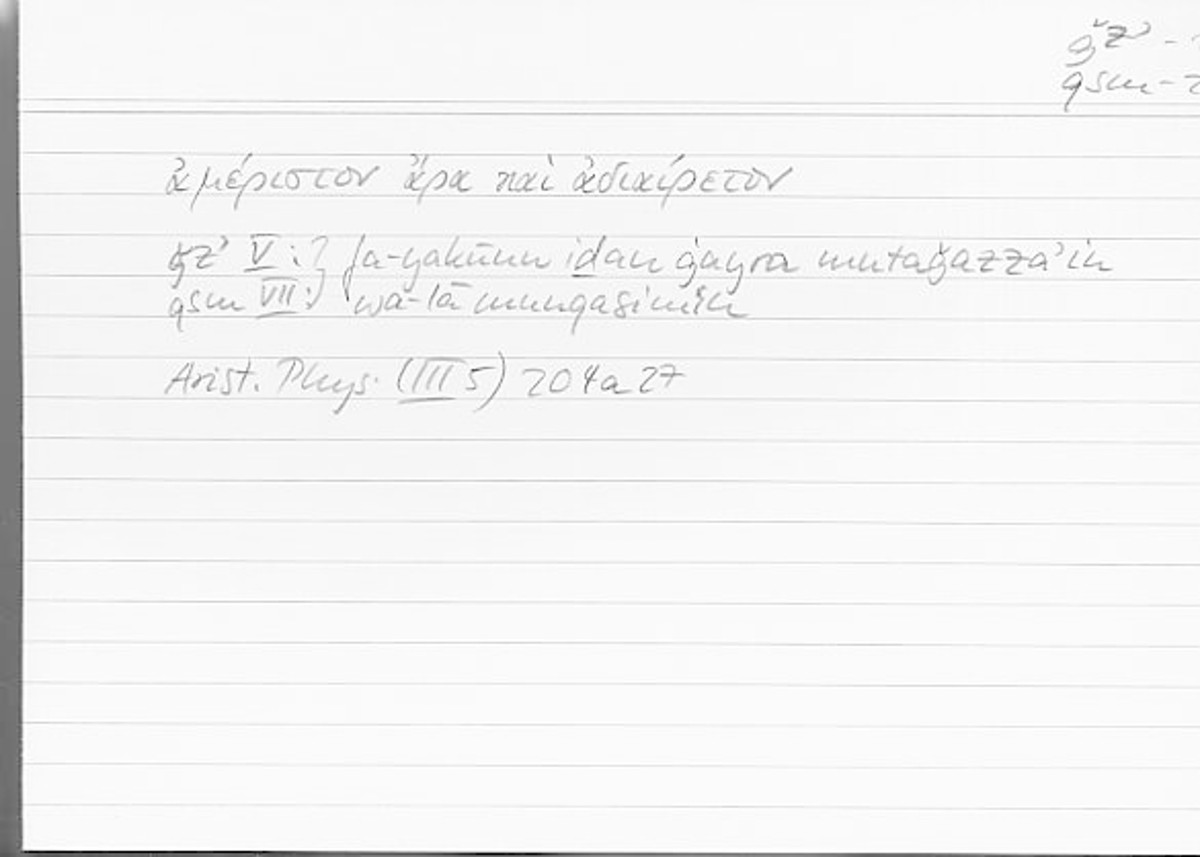 ǧzʾ -
qsm -
ἀμέριστον ἄρα καὶ ἀδιαίρετον
ǧzʾ V : } fa-yakūnu iḏan ġayra mutaǧazzaʾin
qsm VII : } wa-lā munqasimin
Arist. Phys. (III 5) 204a27